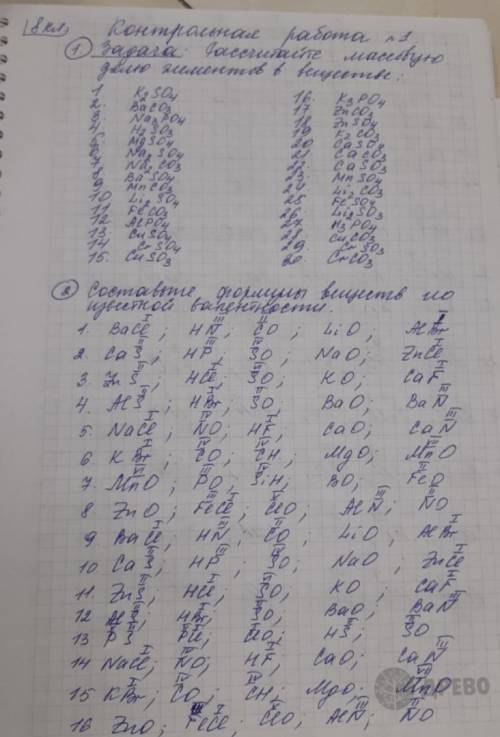 8 кл. Контрольная работа №1.
1 Задача: Рассчитайте массовую
долю элементов в веществе:
1. K2SO4
2. BaCO3
3. Na3PO4
4. H2SO3
5. MgSO4
6. Na2SO4
7. Na2CO3
8. BaSO4
9. MnCO3
10. Li2SO4
11. FeCO3
12. AlPO4
13. CuSO4
14. CrSO4
15. CuSO3
16. K3PO4
17. ZnCO3
18. ZnSO4
19. K2CO3
20. CaSO4
21. CaCO3
22. CaSO3
23. MnSO4
24. Li2CO3
25. FeSO4
26. Li2SO3
27. H3PO4
28. CuCO3
29. CrSO3
30. CrCO3
2 Составьте формулы веществ по
известной валентности.
1. BaCl I; HN III; CO II; LiO; AlBr I
2. CaS II; HP III; SO; NaO; ZnCl I
3. ZnS II; HCl I; SO; KO; CaF I
4. AlS II; HBr I; SO; BaO; BaN III
5. NaCl I; NO; HF I; CaO; CaN III
6. KBr I; CO IV; CH IV; MgO; MnO
7. MnO VI; PO; SiH; BO; FeO
8 ZnO; FeCl; ClO; AlN III; NO
9 BaCl I; HN III; CO II; LiO; AlBr I
10 CaS; HP III; SO; NaO; ZnCl I
11. ZnS; HCl I; SO; KO; CaF I
12 AlS; HBr I; SO; BaO; BaN III
13 PS; PCl; ClO; HS; SO
14 NaCl I; NO; HF I; CaO; CaN III
15 KBr I; CO IV; CH IV; MgO; MnO VI
16 ZnO; FeCl III I; ClO; AlN III; NO
ДРЕВО